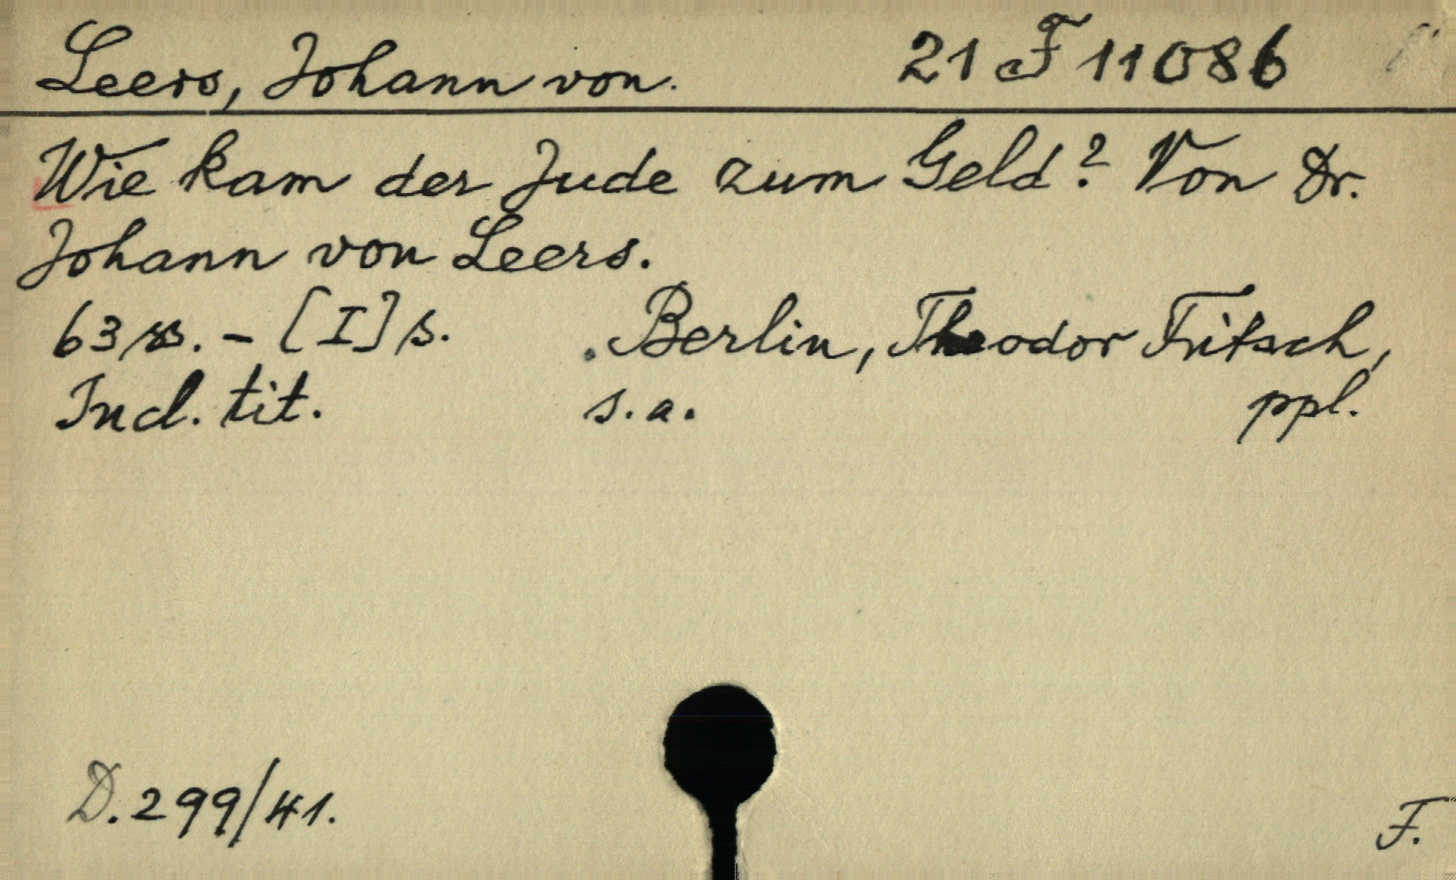 Leers, Johann von. 21 F 11086
Wie kam der Jude zum Geld? Von Dr.
Johann von Leers.
63 ss. - [I] s. Berlin, Theodor Fritsch,
Incl. tit. s. a. ppl.
D. 299/41. F.